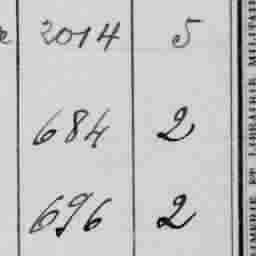 2014 5
684 2
696 2
IMERIE ET LIBRAIRIE MILITAI